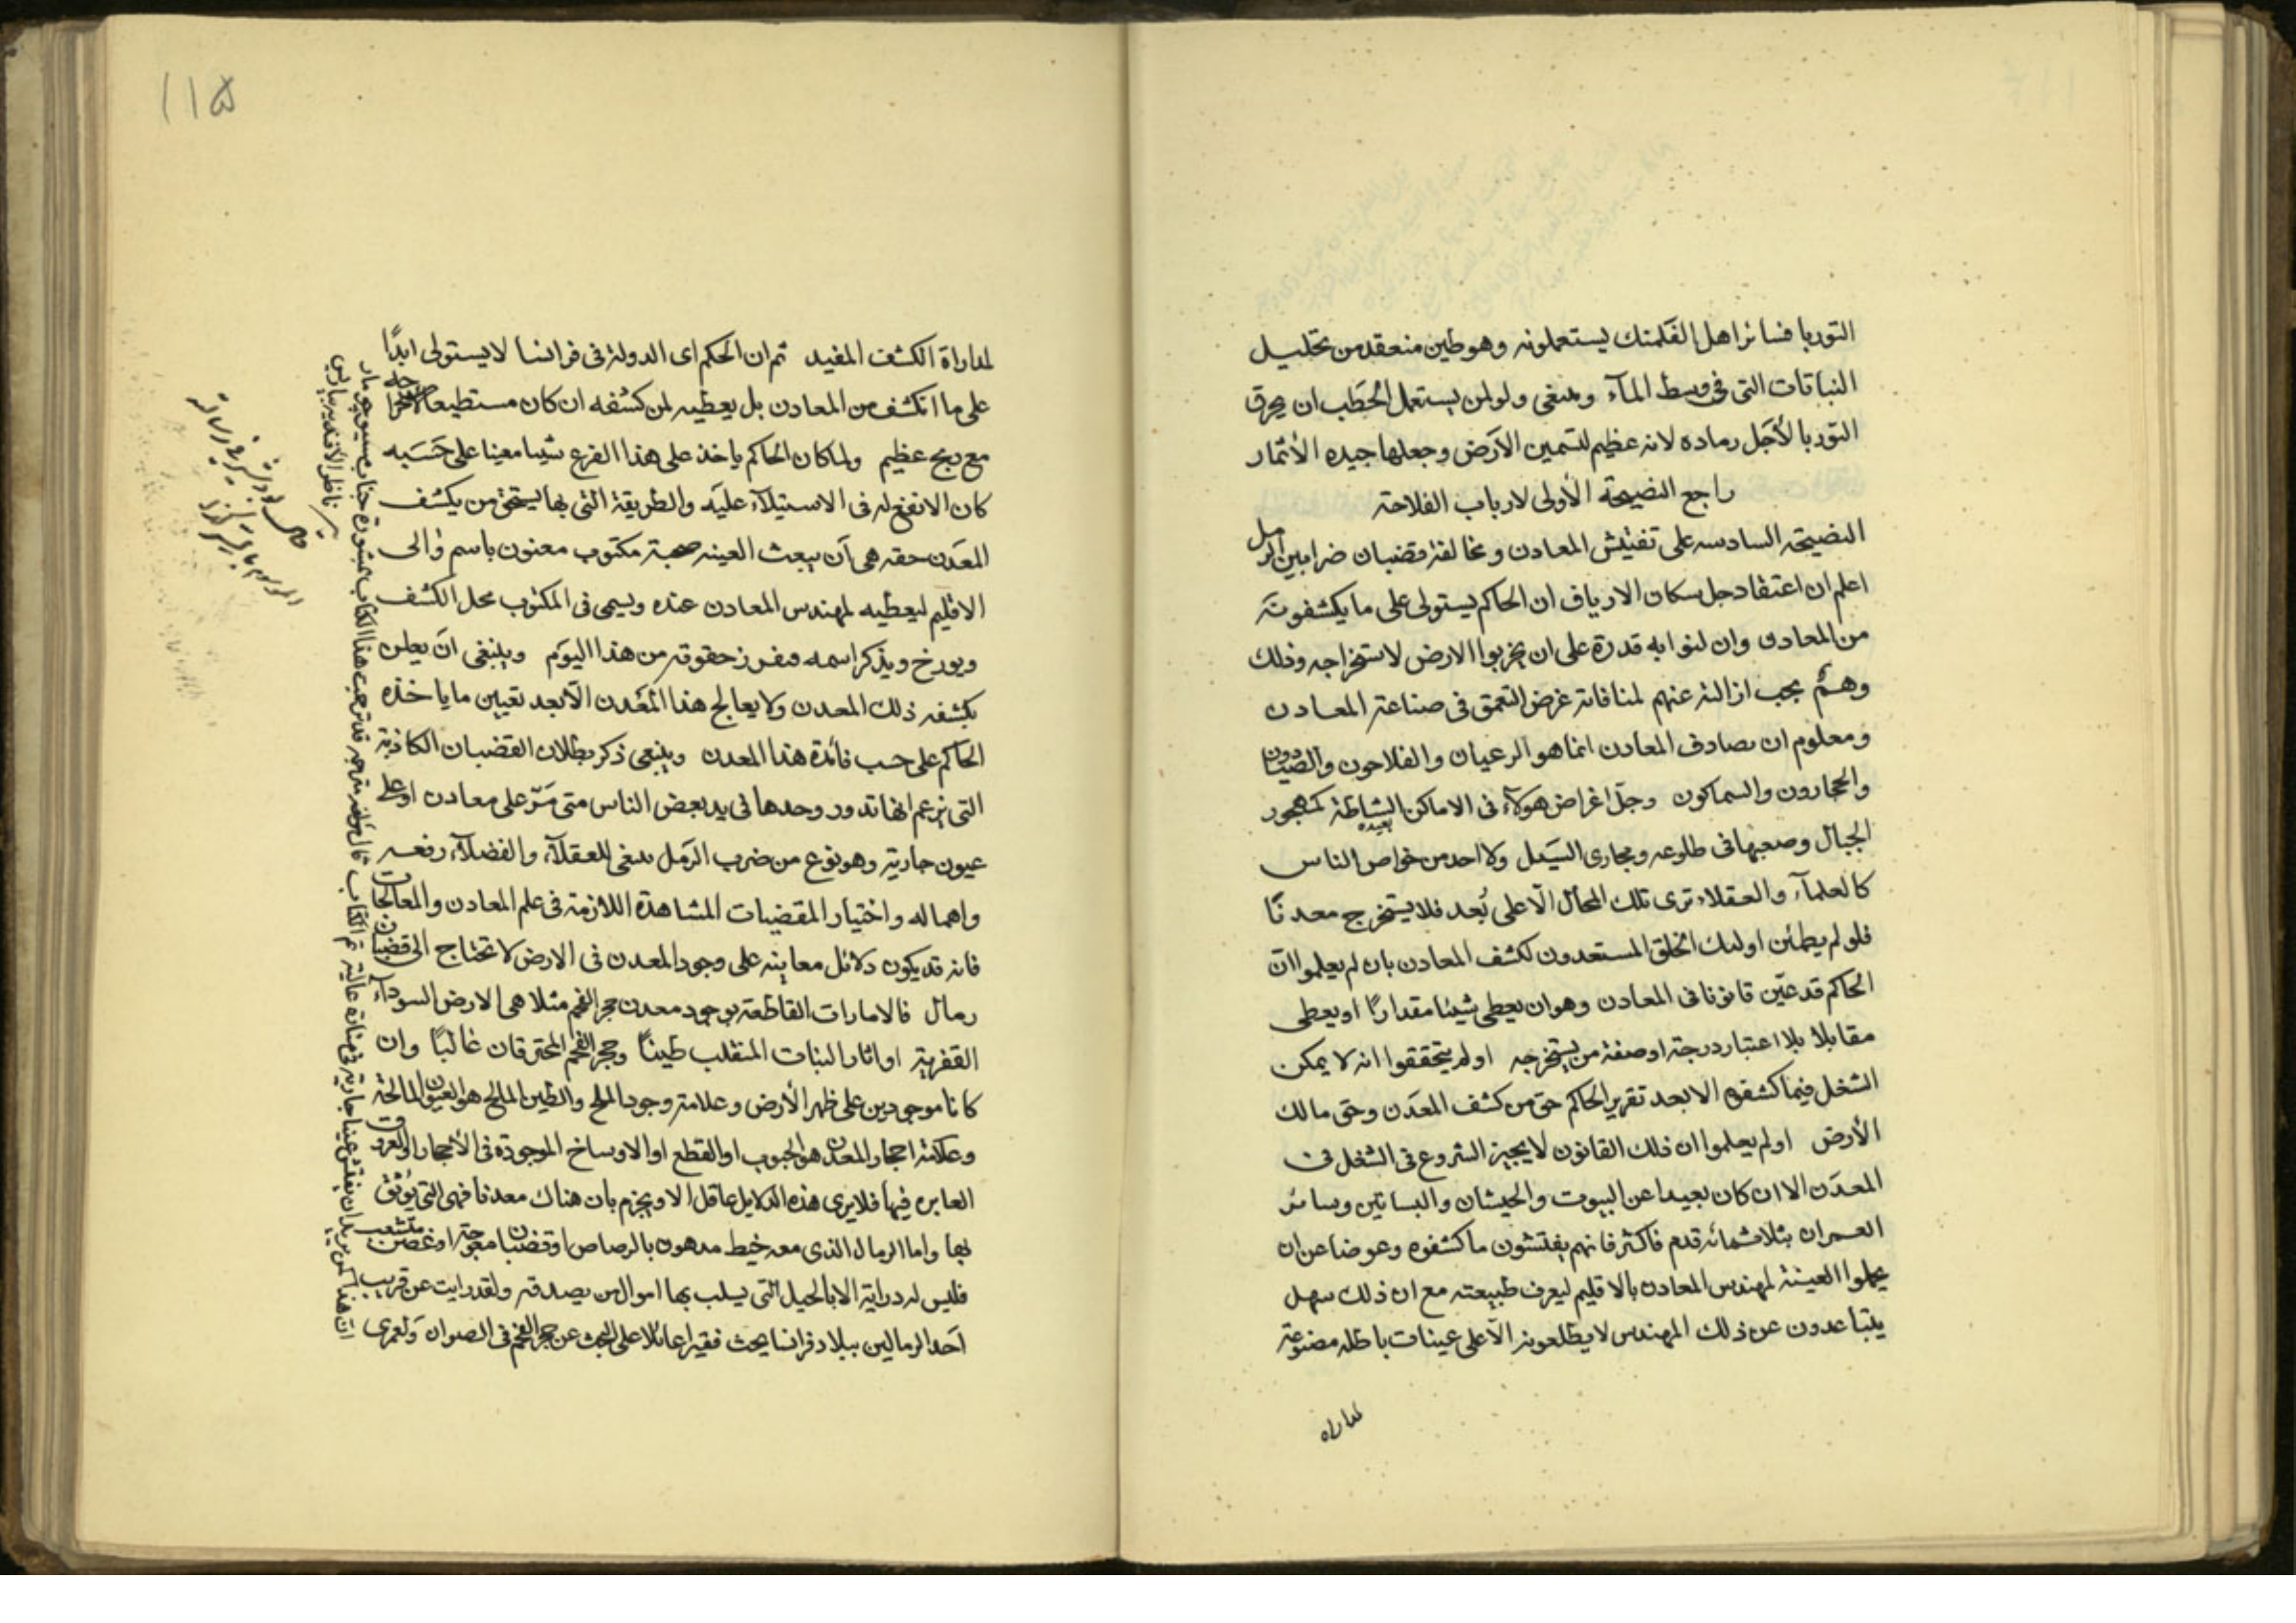 التوربا فسائر اهل الفلمنك يستعملونه وهو طين منعقد من تحليل
النباتات التى فى وسط المآء وينبغى ولو لمن يستعمل الحَطَب ان يحرق
التوربا لأجَل رماده لانه عظيم لتسمين الارَض وجعلها جيده الأثمار
راجع النصيحة الأولى لارباب الفلاحة
النصيحة السادسه على تفتيش المعادن ومخالفة قضبان ضرابين الرمل
اعلم ان اعتقاد جل سكان الارياف ان الحاكم يستولى على ما يكشفونه
من المعادن وان لنوابه قدرة على ان يخربوا الارض لاستخراجه وذلك
وهمٌ يجب ازالته عنهم لمنافاته غرض التعمق فى صناعة المعادن
ومعلوم ان مصادف المعادن انما هو الرعيان والفلاحون والصيادون
والحجارون والسماكون وجلّ اغراض هولآء فى الاماكن الشاطة بعيده كمهجور
الجبال وصعبها فى طلوعه ومجارى السَيل ولا احد من خواص الناس
كالعلمآء والعقلاء ترى تلك المحال الّا على بُعد فلا يستخرج معدنًا
فلو لم يطمئن اولئك الخلق المستعدون لكشف المعادن بان لم يعلموا انّ
الحاكم قد عيّن قانونا فى المعادن وهو ان يعطى شيئا مقدارًا او يعطى
مقابلا بلا اعتبار درجة او صفة من يستخرجه او لم يتحققوا انه لا يمكن
الشغل فيما كشفوه الا بعد تقرير الحاكم حق من كشف المعدَن وحق مالك
الأرض او لم يعلموا ان ذلك القانون لا يجيز الشروع فى الشغل فى
المعدَن الا ان كان بعيدا عن البيوت والحيشان والبساتين وسائر
العمران بثلاثمائة قدم فاكثر فانهم يفتشون ما كشفوه وعوضا عن ان
يحملوا العينة لمهندس المعادن بالاقليم ليعرف طبيعته مع ان ذلك سهل
يتباعدون عن ذلك المهندس لا يطلعونه الّا على عينات باطله مصنوعة
لمداراه
١١٥
لمداراة الكشف المفيد ثم ان الحكم اى الدولة فى فرانسا لا يستولى ابدًا
على ما انكشف من المعادن بل يعطيه لمن كشفه ان كان مستطيعا لاخراجه
مع ربح عظيم ولما كان الحاكم ياخذ على هذا الفرع شيا معينا على حَسَبه
كان الانفع له فى الاستيلآء عليَه والطريقة التى بها يستحق من يكشف
المعدَن حقه هى اَن يبعث العينه صحبة مكتوب معنون باسم والى
الاقليم ليعطيه لمهندس المعادن عنده ويسمى فى المكتوب محل الكشف
ويورخ ويذكر اسمه حقوقه من هذا اليَوم وينبغى انَ يعلن
بكشفه ذلك المعدن ولا يعالج هذا المَعْدن الّا بعد تعيين ما ياخذه
الحاكم على حسب فائدة هذا المعدن وينبغى ذكر بطلان القضبان الكاذبة
التى يزعم انها تدور وحدها فى يد بعض الناس متى مَرّ على معادن او على
عيون جارية وهو نوع من ضرب الرَمل ينبغى للعقلآء والفضلآء رفعه
واهماله واختيار المقضيات المشاهدة اللازمة فى علم المعادن والمعالجات
فانه قد يكون دلائل معاينه على وجود المعدن فى الارض لا تحتاج الى قضبان
رمال فالامارات القاطعة بوجود معدن حجر الفحم مثلا هى الارض السودآء
القفرية او اثار النبات المنقلب طينًا وحجر الفحم المحترقان غالبًا وان
كانا موجودين على ظهر الأرض وعلامة وجود الملح والطين المالح هو العيون المالحة
وعلامة احجار المعدن هو الحبوب او القطع او الاوساخ الموجودة فى الأحجار او العروق
العابره فيها فلا يرى هذه الدلايل عاقل الا ويجزم بان هناك معدنا فهى التى يُوثق
بها واما الرمال الذى معه خيط مدهون بالرصاص او قضبان معوجة او غصن متشعب
فليس له دراية الا بالحيل التى يسلب بها اموال من يصدقه ولقد رايت عن قريب
اَحد الرمالين ببلاد فرانسا يحث فقيرا عائلا على البحث عن حجر الفحم فى الصوان ولعمرى
ان هذا كمن يريد ان يفتش عينا جارية فى منارة عالية تم الكتاب قال مؤلفه مترجمه قد ترجمت هذا الكتاب بمشورة جناب مسيو جومار
ناظر الأفنديه بباريس